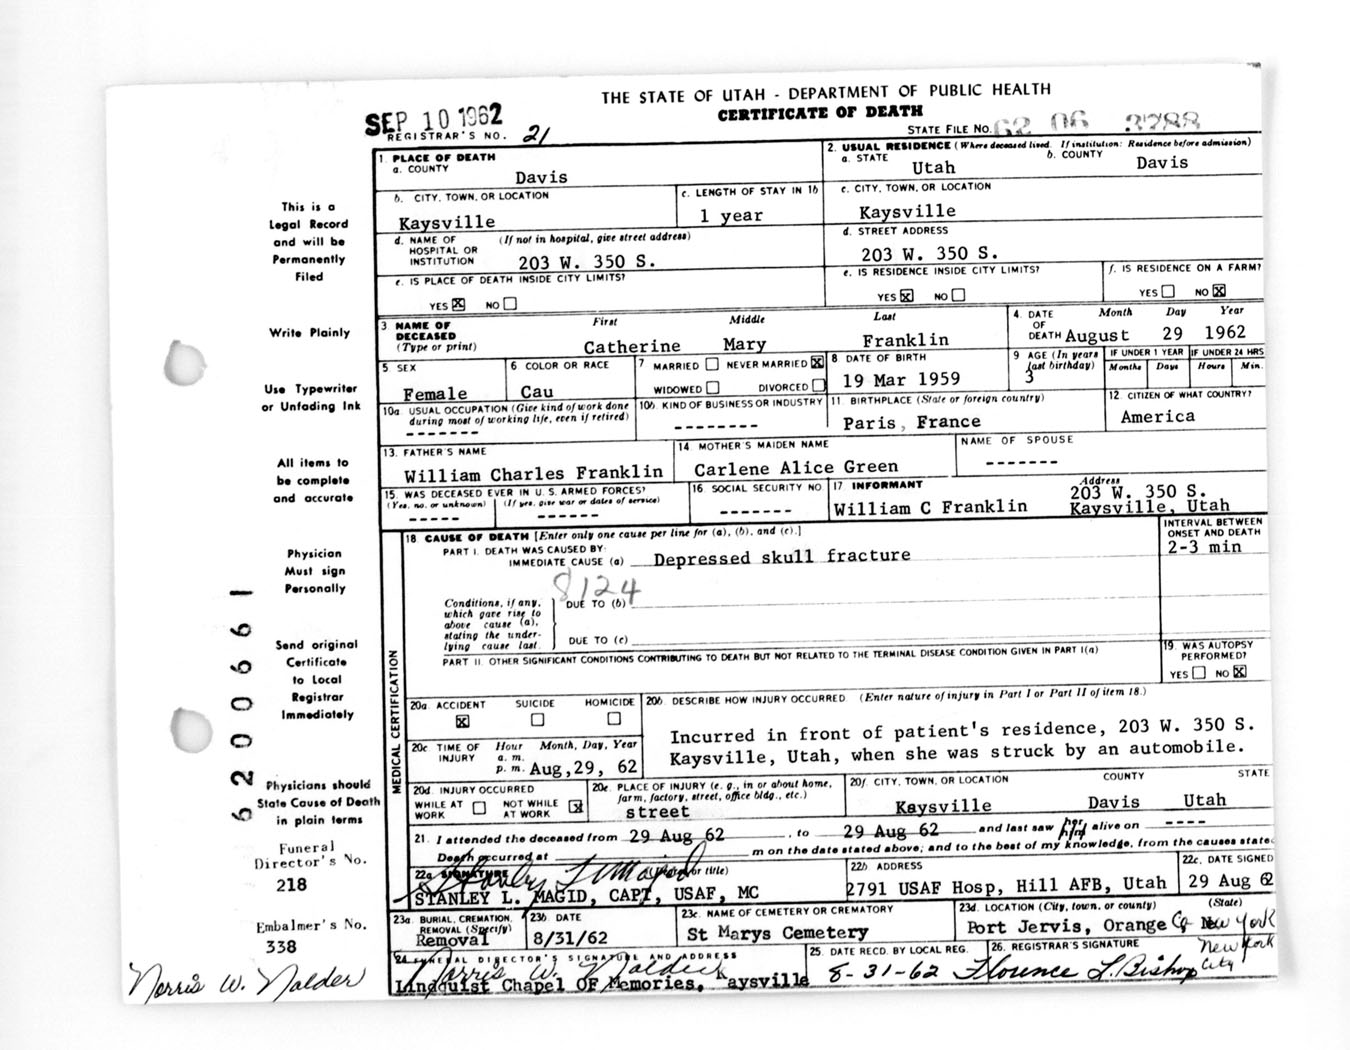 THE STATE OF UTAH - DEPARTMENT OF PUBLIC HEALTH
CERTIFICATE OF DEATH
SEP 10 1962
REGISTRAR'S NO. 21
STATE FILE NO. 62 06 3788
1. PLACE OF DEATH
a. COUNTY
Davis
2. USUAL RESIDENCE (Where deceased lived. If institution: Residence before admission)
a. STATE Utah b. COUNTY Davis
b. CITY, TOWN, OR LOCATION
Kaysville
c. LENGTH OF STAY IN 1b
1 year
c. CITY, TOWN, OR LOCATION
Kaysville
d. NAME OF HOSPITAL OR INSTITUTION (If not in hospital, give street address)
203 W. 350 S.
d. STREET ADDRESS
203 W. 350 S.
e. IS PLACE OF DEATH INSIDE CITY LIMITS?
YES ☒ NO ☐
e. IS RESIDENCE INSIDE CITY LIMITS?
YES ☒ NO ☐
f. IS RESIDENCE ON A FARM?
YES ☐ NO ☒
3. NAME OF DECEASED (Type or print)
First Middle Last
Catherine Mary Franklin
4. DATE OF DEATH
Month Day Year
August 29 1962
5. SEX
Female
6. COLOR OR RACE
Cau
7. MARRIED ☐ NEVER MARRIED ☒
WIDOWED ☐ DIVORCED ☐
8. DATE OF BIRTH
19 Mar 1959
9. AGE (In years last birthday)
3
IF UNDER 1 YEAR
Months Days
IF UNDER 24 HRS
Hours Min.
10a. USUAL OCCUPATION (Give kind of work done during most of working life, even if retired)
-------
10b. KIND OF BUSINESS OR INDUSTRY
--------
11. BIRTHPLACE (State or foreign country)
Paris, France
12. CITIZEN OF WHAT COUNTRY?
America
13. FATHER'S NAME
William Charles Franklin
14. MOTHER'S MAIDEN NAME
Carlene Alice Green
NAME OF SPOUSE
-------
15. WAS DECEASED EVER IN U.S. ARMED FORCES?
(Yes, no, or unknown) (If yes, give war or dates of service)
----- ------
16. SOCIAL SECURITY NO.
-------
17. INFORMANT
William C Franklin
Address
203 W. 350 S.
Kaysville, Utah
18. CAUSE OF DEATH [Enter only one cause per line for (a), (b), and (c).]
PART I. DEATH WAS CAUSED BY:
IMMEDIATE CAUSE (a) Depressed skull fracture
INTERVAL BETWEEN ONSET AND DEATH
2-3 min
8124
Conditions, if any, which gave rise to above cause (a), stating the underlying cause last.
DUE TO (b)
DUE TO (c)
PART II. OTHER SIGNIFICANT CONDITIONS CONTRIBUTING TO DEATH BUT NOT RELATED TO THE TERMINAL DISEASE CONDITION GIVEN IN PART I(a)
19. WAS AUTOPSY PERFORMED?
YES ☐ NO ☒
MEDICAL CERTIFICATION
20a. ACCIDENT ☒ SUICIDE ☐ HOMICIDE ☐
20b. DESCRIBE HOW INJURY OCCURRED. (Enter nature of injury in Part I or Part II of item 18.)
Incurred in front of patient's residence, 203 W. 350 S.
Kaysville, Utah, when she was struck by an automobile.
20c. TIME OF INJURY
Hour Month, Day, Year
a.m.
p.m. Aug,29, 62
20d. INJURY OCCURRED
WHILE AT WORK ☐ NOT WHILE AT WORK ☒
20e. PLACE OF INJURY (e.g., in or about home, farm, factory, street, office bldg., etc.)
street
20f. CITY, TOWN, OR LOCATION COUNTY STATE
Kaysville Davis Utah
21. I attended the deceased from 29 Aug 62, to 29 Aug 62 and last saw her him alive on ----
Death occurred at m on the date stated above; and to the best of my knowledge, from the causes stated
22a. SIGNATURE (Degree or title)
STANLEY L. MAGID, CAPT, USAF, MC
22b. ADDRESS
2791 USAF Hosp, Hill AFB, Utah
22c. DATE SIGNED
29 Aug 62
23a. BURIAL, CREMATION, REMOVAL (Specify)
Removal
23b. DATE
8/31/62
23c. NAME OF CEMETERY OR CREMATORY
St Marys Cemetery
23d. LOCATION (City, town, or county) (State)
Port Jervis, Orange Co New York
New York City
24. FUNERAL DIRECTOR'S SIGNATURE AND ADDRESS
Norris W. Nalder
Lindquist Chapel OF Memories, Kaysville
25. DATE RECD. BY LOCAL REG.
8-31-62
26. REGISTRAR'S SIGNATURE
Florence L. Bishop
This is a
Legal Record
and will be
Permanently
Filed
Write Plainly
Use Typewriter
or Unfading Ink
All items to
be complete
and accurate
Physician
Must sign
Personally
Send original
Certificate
to Local
Registrar
Immediately
Physicians should
State Cause of Death
in plain terms
Funeral
Director's No.
218
Embalmer's No.
338
Norris W. Nalder
62 00661